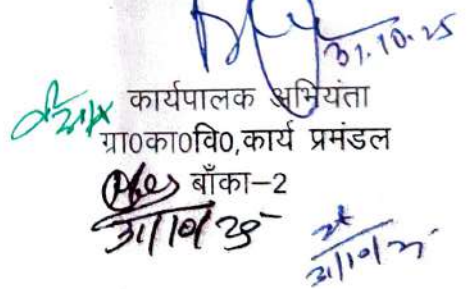 31.10.25
कार्यपालक अभियंता
ग्रा0का0वि0,कार्य प्रमंडल
बाँका-2
31/10/25
31/10/25